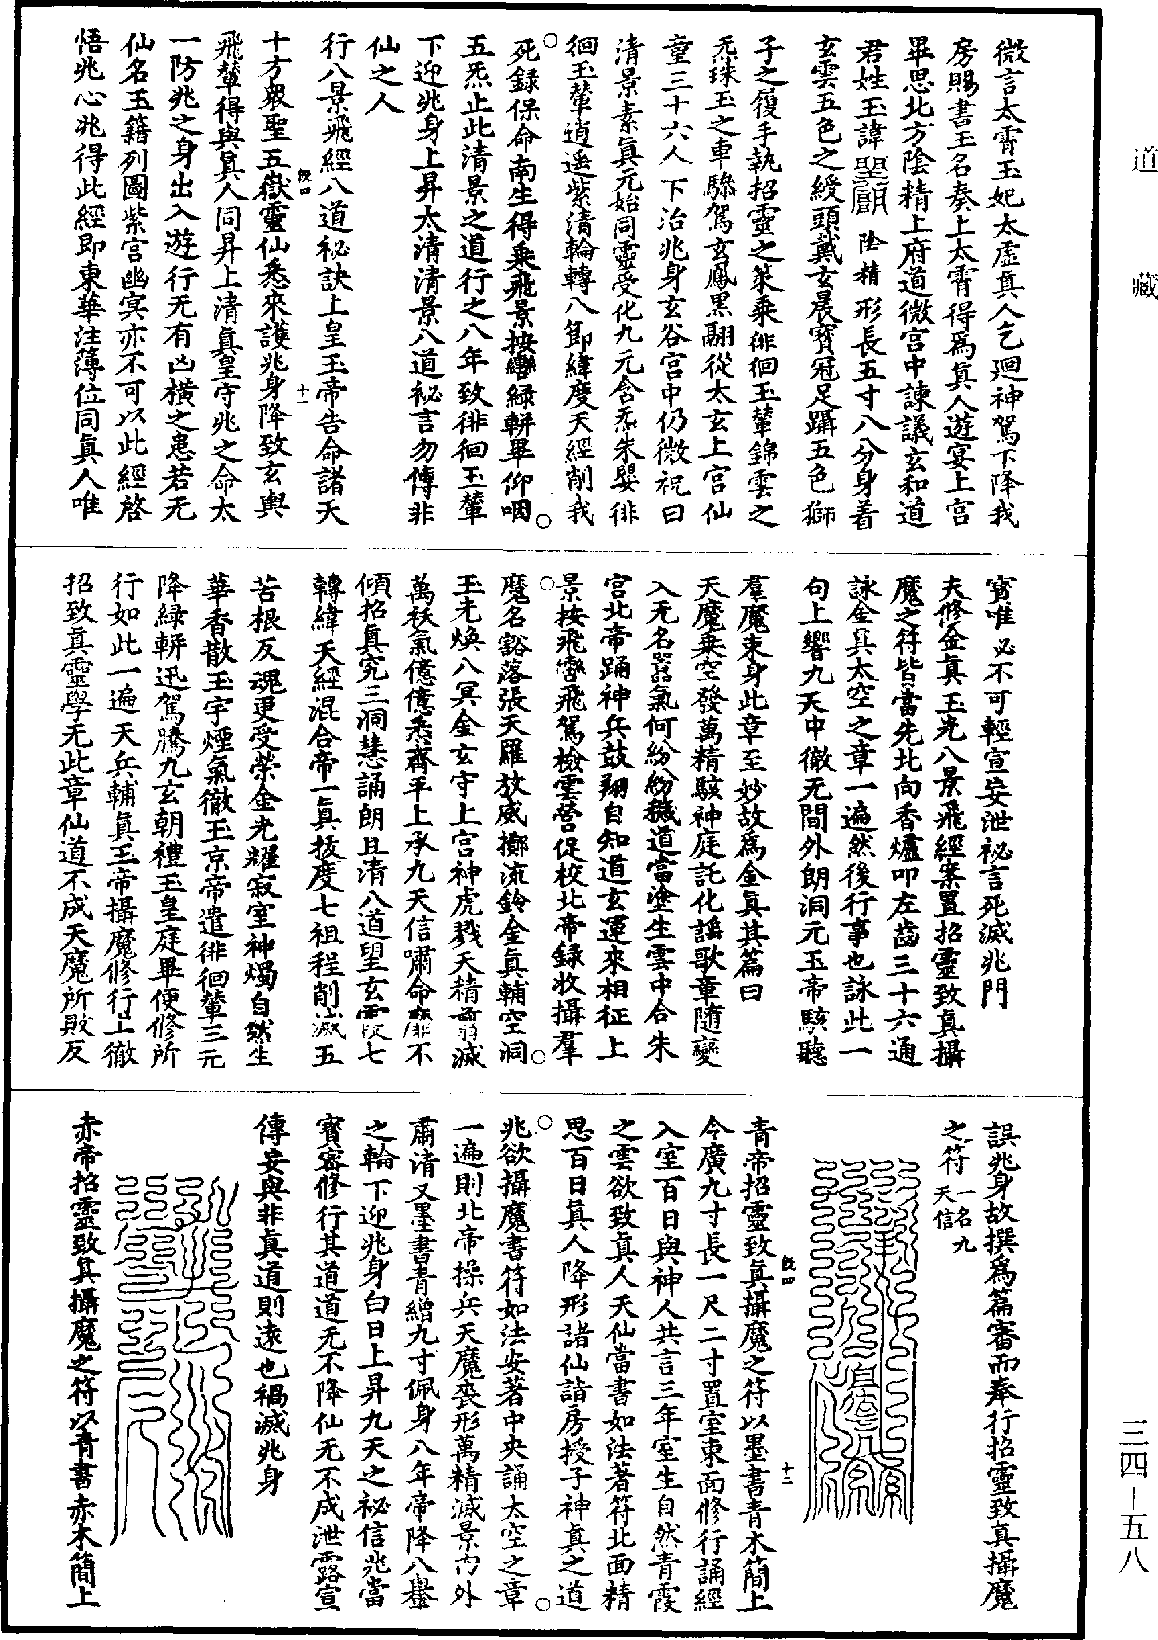 道藏
三四－五八
微言太霄玉妃太虛真人乞迴神駕下降我
房賜書玉名奏上太霄得為真人遊宴上宮
畢思北方陰精上府道微宮中諫議玄和道
君姓玉諱 陰精形長五寸八分身著
玄雲五色之綬頭戴玄晨寶冠足躡五色獅
子之履手執招靈之䇿乘徘徊玉輦錦雲之
炁珠玉之車驂駕玄鳳黑翮從太玄上宮仙
童三十六人下治兆身玄谷宮中仍微祝曰
清景素真元始同靈受化九元含炁朱嬰徘
徊玉輦逍遙紫清輪轉八節緯度天經削我
死録保命南生得乘飛景按轡緑軿畢仰咽
五炁止此清景之道行之八年致徘徊玉輦
下迎兆身上昇太清清景八道祕言勿傳非
仙之人
行八景飛經八道祕訣上皇玉帝告命諸天
十方眾聖五嶽靈仙悉來護兆身降致玄輿
既四 十一
飛輦得與真人同昇上清真皇守兆之命太
一防兆之身出入遊行无有凶橫之患若无
仙名玉籍列圖紫宮幽冥亦不可以此經啓
悟兆心兆得此經即東華注薄位同真人唯
寳唯必不可輕宣妄泄祕言死滅兆門
夫修金真玉光八景飛經案置招靈致真攝
魔之符皆當先北向香爐叩左齒三十六通
詠金真太空之章一遍然後行事也詠此一
句上響九天中徹无間外朗洞元玉帝駭聽
羣魔束身此章至妙故為金真其篇曰
天魔乘空發萬精駭神庭託化謠歌章隨變
入无名嚣氣何紛紛穢道當塗生雲中合朱
宮北帝踊神兵鼓翔自知道玄運來相征上
景按飛轡飛駕檢雲營促校北帝錄收攝羣
魔名豁落張天羅放威擲流鈴金真輔空洞
玉光煥八冥金玄守上宮神虎戮天精 滅
萬祅氣億億悉齊平上承九天信嘯命靡不
傾招真究三洞慧誦朗且清八道望玄霞七
轉緯天經混合帝一真拔度七祖程削滅五
苦根反魂更受榮金光耀寂室神燭自然生
華香散玉宇煙氣徹玉京帝遣徘徊輦三元
降緑軿迅駕騰九玄朝禮玉皇庭畢便修所
行如此一遍天兵輔真玉帝攝魔修行上徹
招致真靈學无此章仙道不成天魔所敗反
誤兆身故撰為篇審而奉行招靈致真攝魔
之符一名九天信
青帝招靈致真攝魔之符以墨書青木簡上
既四 十二
令廣九寸長一尺二寸置室東面修行誦經
入室百日與神人共言三年室生自然青霞
之雲欲致真人天仙當書如法著符北面精
思百日真人降形諸仙詣房授子神真之道
兆欲攝魔書符如法安著中央誦太空之章
一遍則北帝操兵天魔喪形萬精滅景内外
肅清又墨書青繒九寸佩身八年帝降八轝
之輪下迎兆身白日上昇九天之祕信兆當
寳密修行其道道无不降仙无不成泄露宣
傳妄與非真道則遠也禍滅兆身
赤帝招靈致真攝魔之符以青書赤木簡上